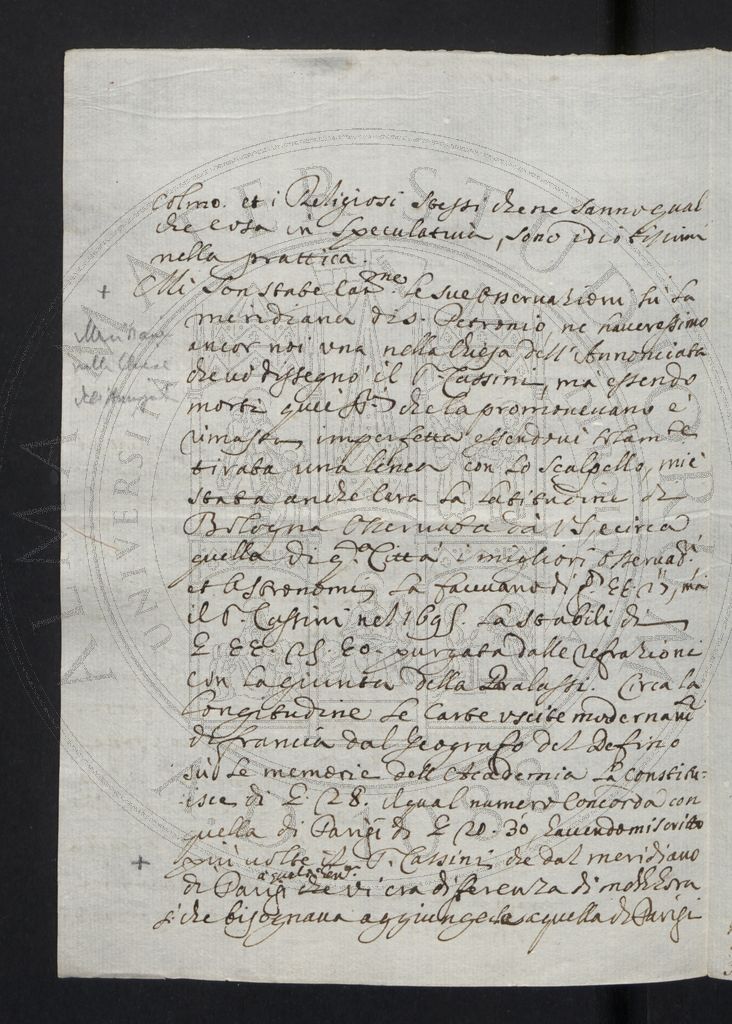 colmo. et i Religiosi stessi che ne sanno qual
che cosa in speculativa, sono idiotissimi
nella prattica.
Mi son state car.me le sue osservazioni sù la
meridiana di S. Petronio, ne haveressimo
ancor noi una nella Chiesa dell'Annonciata
che vi dissegnò il S.r Cassini, mà essendo
morti quei che la promovevano è
rimasta imperfetta essendovi solam.te
tirata una linea con lo scalpello, mi è
stata anche cara la latitudine di
Bologna osservata da V.S, e circa
quella di q.a Città i migliori osservad.i
et Astronomi la facevano di mà
il S.r Cassini nel 1695. la stabilì di
purgata dalle refrazioni
con la giunta della Circa la
longitudine le carte uscite modernam.te
di francia dal geografo del Delfino
sù le memorie dell'Academia la constitu-
isce di 28. il qual numero concorda con
quella di Parigi di 20. 30 havendomi scritto
più volte il S.r Cassini che dal meridiano
di Parigi a quel di che vi era diferenza di mezz'hora
sì che bisognava aggiungerla a quella di Parigi
+
Meridiana
nella Chiesa
dell'Annunziata
+
ALMA MATER STUDIORUM
UNIVERSITÀ